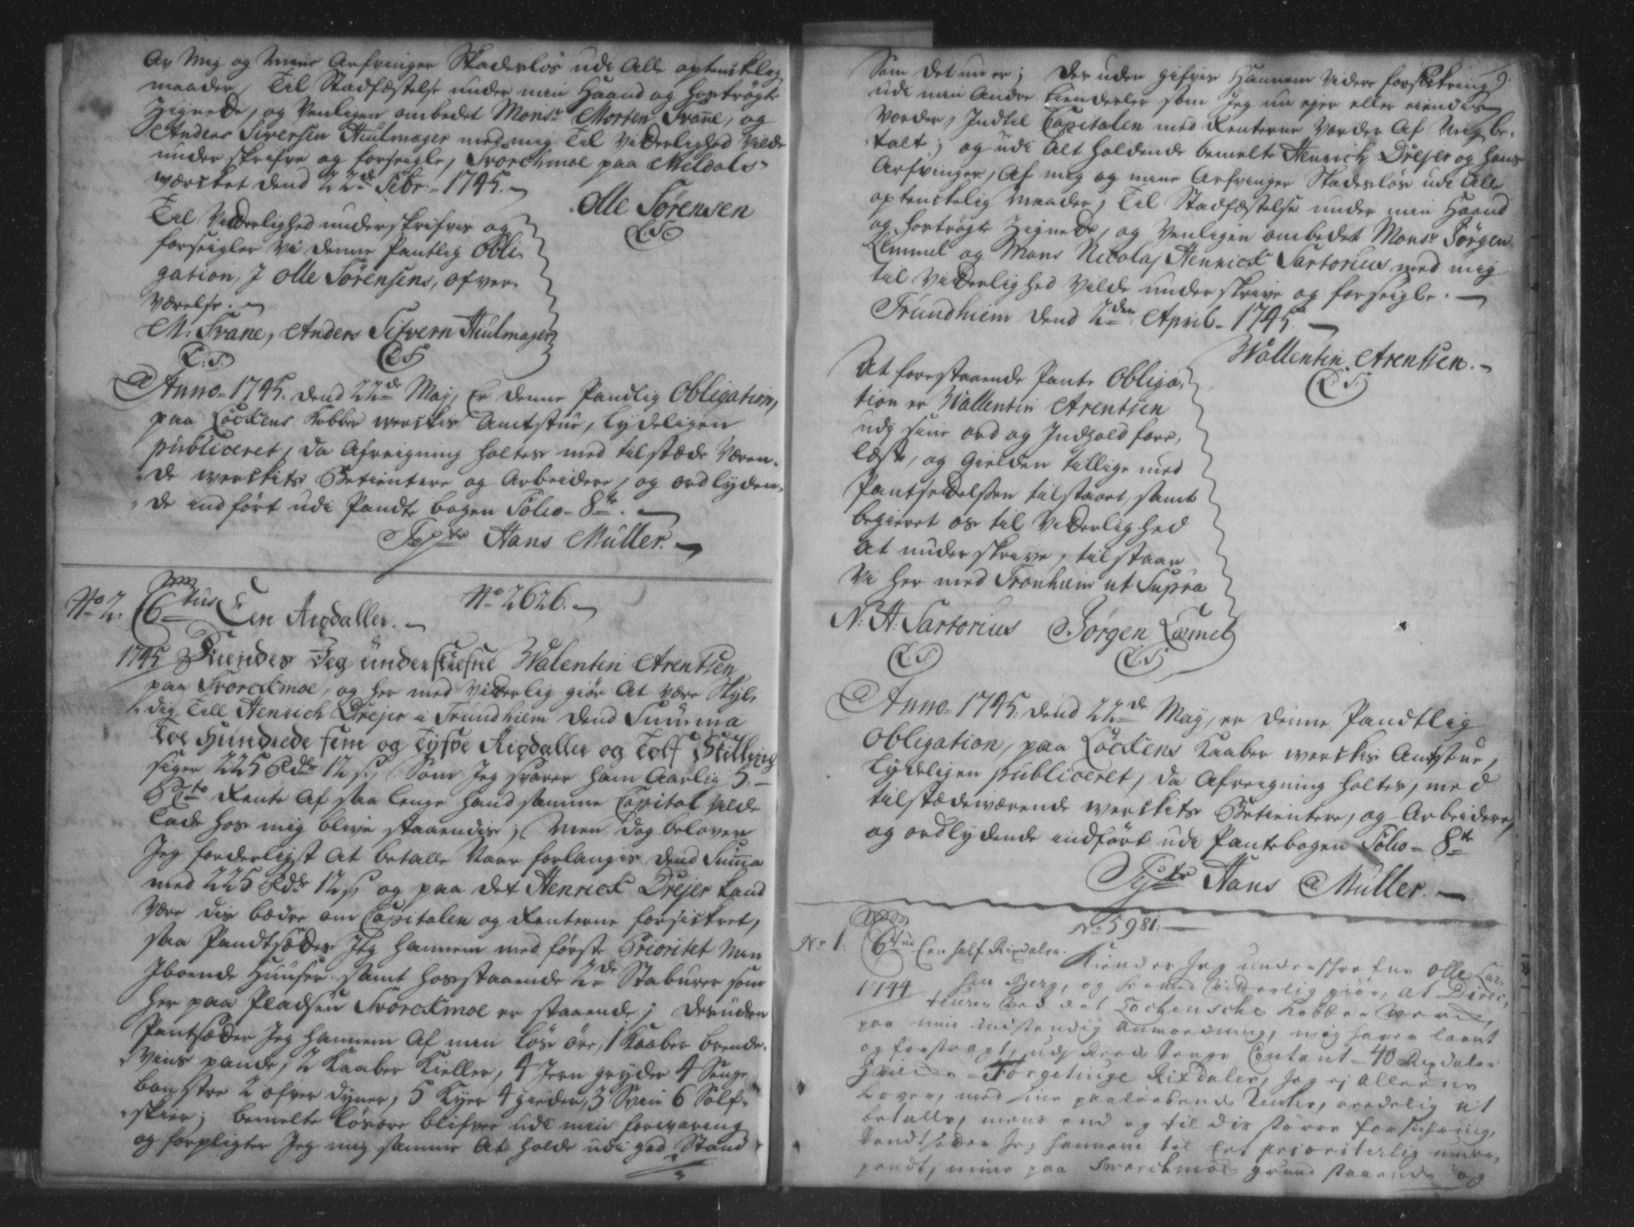 Av Mig og Mine Arfvinger Skadesløs udi Alle optenkelig
maader, Til Stadfæstelse under min Haand og hostrøgte
Zignede, og Venligen ombedet Monsr Morten Svane, og
Anders Siversen Hiulmager med mig til Vidderlighed Vilde
under skrifve og forseigle, Svorckmoe paa Meldals-
værcket dend 22de Febr. 1745.
Olle Sørensen
(L.S.)
Til Vidderlighed underskrifver og
forseigler Vi denne Pantlig Obli-
gation, I Olle Sørensens, ofver-
værelse.
M. Svane, Anders Sifvern Hiulmager
(L.S.) (L.S.)
Anno 1745. dend 22de Maj, Er denne Pandlig Obligation,
paa Løckens Kobber werckes Amtstue, lydeligen
publiceret, da Afreigning holtes med tilstæde Væren-
de werckets Betientere og Arbeidere, og ordlyden-
de indført udi Pandte bogen Folio 8te.
Hans Müller.
No 2. 6tus Een Rixdaller. No 2626.
1745 Kiendes Jeg underskrefne Walentin Arentsen
paa Svorckmoe, og her med Vidderlig giør At være Skyl-
dig Till Henrich Drejer i Trundhiem dend Summa
Toe Hundrede fem og Tyfve Rixdaller og Tolf Skilling
siger 225 Rdr 12 s, Som Jeg svarer ham Aarlig 5
Pcto Rente Af saa lenge hand samme Capital vilde
lade hos mig blive staaendis; Men dog belover
Jeg forderligst At betalle Naar forlanges dend Suma
med 225 Rdr 12 s, og paa det Henrick Drejer kand
Være dis bædre om Capitalen og Renterne forsickret,
saa Pandtsæder Jeg Hannem med første Prioritet Min
Iboende Huuser samt hosstaaende 2de Stabuer som
her paa Pladsen Svorckmoe er staaende; desuden
Pantsæder Jeg Hannem Af min løse øre, 1 Kaaber brende-
viins pande, 2 Kaaber Kieller, 4 Jern gryder 4 Senge
2 ofver dyner, 5 Kyer 4 gieder, 3 Sviin 6 Sølf-
skeer; bemelte løsøre blifver udi min forvaring
og forpligter Jeg mig samme At holde udi god Stand
9.
Som det nu er; Des uden gifves Hannem Videre forsickring
udi min Andre Eiendeler som Jeg nu ejer eller eiendes
vorder, Indtil Capitalen med Renterne vorder Af Mig be-
talt; og udi Alt holdende bemelte Henrich Drejer og hans
Arfvinger, Af mig og mine Arfvinger Skadesløs udi Alle
optenckelig Maader, Til Stadfæstelse under min Haand
og hostrøgte Zignede, og Venligen ombedet Monsr Jørgen
Lemmel og Mons Nicolaj Henrick Sartorius med mig
til Vidderlighed Vilde underskrive og forseigle.
Trundhiem dend 2den April 1745
Wallentin Arentsen.
(L.S.)
At forestaaende Pante Obliga-
tion er Wallentin Arentsen
udj sine ord og Indhold fore-
læst, og Gielden tillige med
Pantsædelsen tilstaaet, samt
begieret os til Vidderlighed
At underskrive, tilstaar
Vi her med Tronhiem ut Supra
N. H. Sartorius Jørgen Læmel
(L.S.) (L.S.)
Anno 1745. dend 22de May, er denne Pandtlig
Obligation, paa Løckens Kaaber werckes Amtstue,
Lydeligen publiceret, da Afreigning holtes, med
tilstædeværende werckets Betientere, og Arbeidere,
og ordlydende indført udi Pantebogen Folio 8te
Hans Müller.
No 5981.
No 1. 6tus Een half Rixdaler.
1744 Kiendes Jeg underschrefne Olle
Berg, og hermed Vidderlig giør, at Direc-
teuren ved det Løckensche Kobber Verck,
paa min indstendig Anmodning, mig haver laant
og forstragt, udj Rede Penge Contant 40 Rixdaler
Fyrgetiuge Rixdaler, Jeg ej alleene
Lover, med sine paaløbende Renter, reedelig at
betalle, mens end og til dis større forsichring,
Pandtsæder Jeg hannem til første prioriterlig under-
pandt, mine paa Svorckmoe grund staaende og